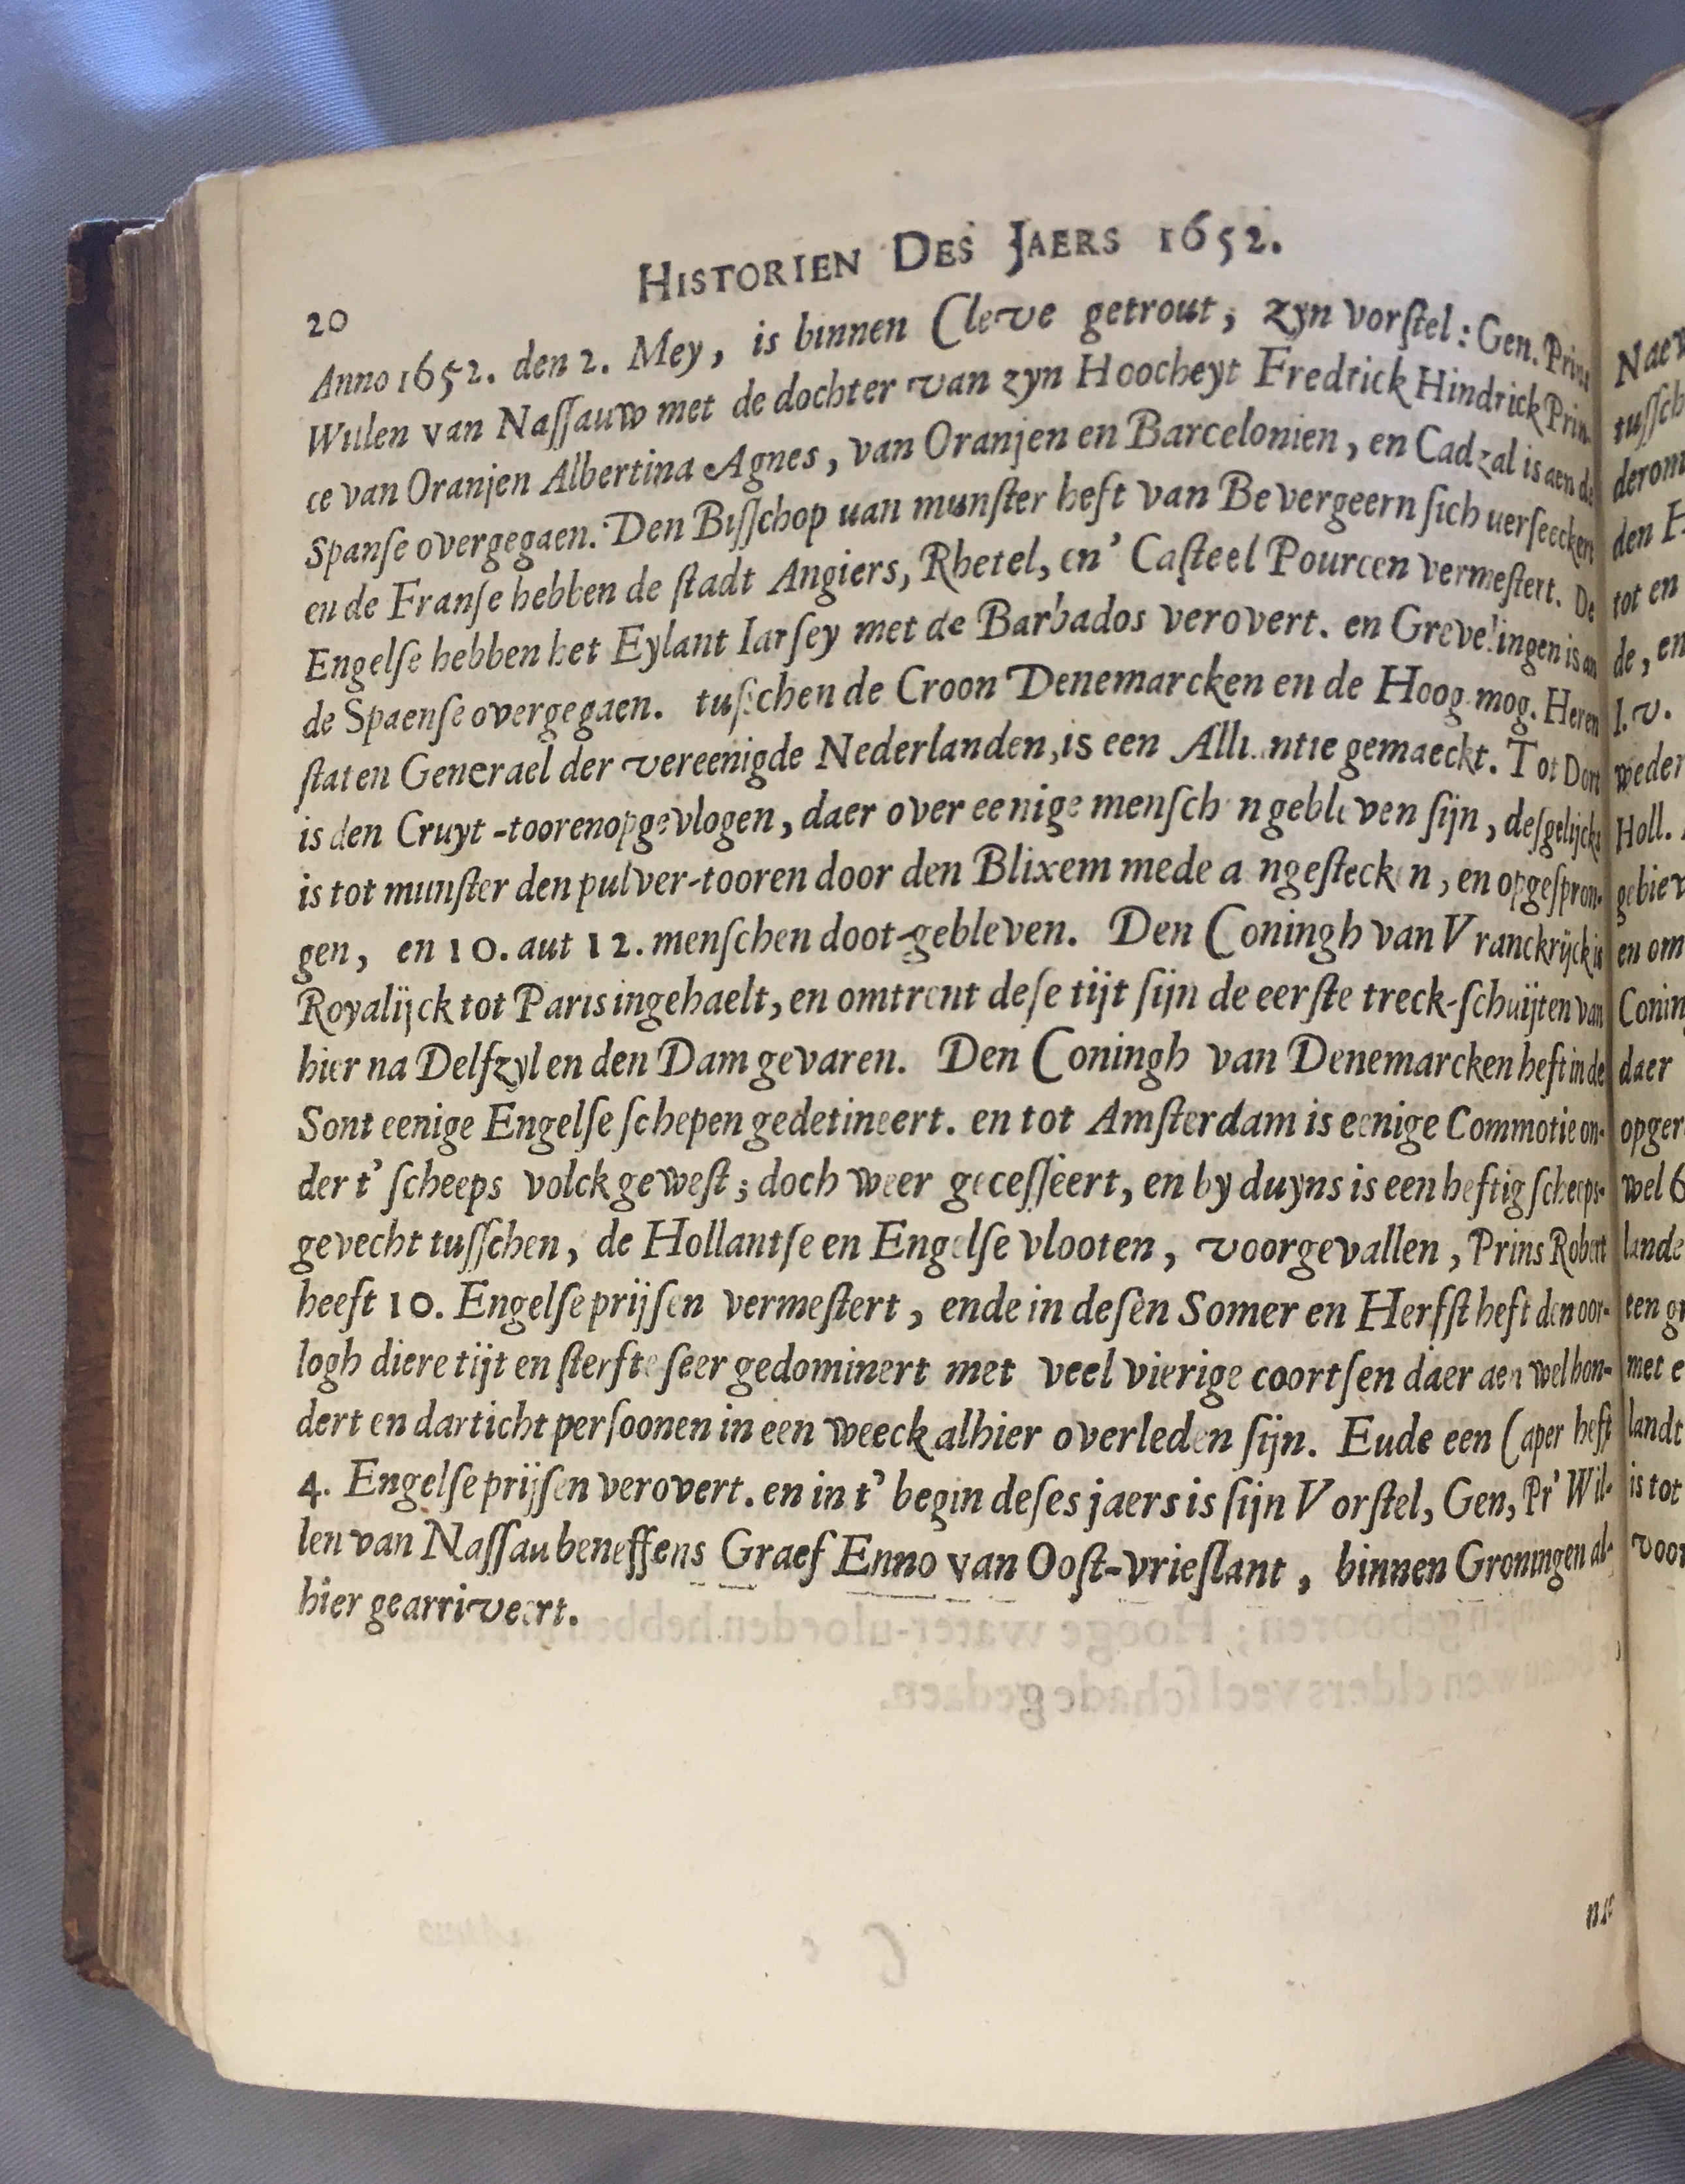 HISTORIEN DES JAERS 1652.
20
Anno 1652. den 2. Mey, is binnen Cleve getrout, zyn vorſtel: Gen. Prins
Willen van Naſſauw met de dochter van zyn Hoocheyt Fredrick Hindrick Prin-
ce van Oranjen Albertina Agnes, van Oranjen en Barcelonien, en Cadzal is aen de
Spanſe overgegaen. Den Biſſchop uan munſter heft van Bevergeern ſich uerſeeckert
en de Franſe hebben de ſtadt Angiers, Rhetel, en' Caſteel Pourcen vermeſtert. De
Engelſe hebben het Eylant Iarſey met de Barbados verovert. en Grevelingen is an
de Spaenſe overgegaen. tuſſchen de Croon Denemarcken en de Hoog mog. Heren
ſtaten Generael der vereenigde Nederlanden, is een Alliantie gemaeckt. Tot Dort
is den Cruyt-toorenopgevlogen, daer over eenige menſchen gebleven ſijn, deſgelijcks
is tot munſter den pulver-tooren door den Blixem mede angeſtecken, en opgeſpron-
gen, en 10. aut 12. menſchen doot-gebleven. Den Coningh van Vranckrijck is
Royalijck tot Paris ingehaelt, en omtrent deſe tijt ſijn de eerſte treck-ſchuijten van
hier na Delfzyl en den Dam gevaren. Den Coningh van Denemarcken heft in de
Sont eenige Engelſe ſchepen gedetineert. en tot Amſterdam is eenige Commotie on-
der t' ſcheeps volck geweſt; doch weer geceſſeert, en by duyns is een heftig ſcheeps-
gevecht tuſſchen, de Hollantſe en Engelſe vlooten, voorgevallen, Prins Robert
heeft 10. Engelſe prijſen vermeſtert, ende in deſen Somer en Herfſt heft den oor-
logh diere tijt en ſterfte ſeer gedominert met veel vierige coortſen daer aen wel hon-
dert en darticht perſoonen in een weeck alhier overleden ſijn. Eude een Caper heft
4. Engelſe prijſen verovert. en in t' begin deſes jaers is ſijn Vorſtel, Gen, Pr' Wil-
len van Naſſau beneffens Graef Enno van Ooſt-vrieſlant, binnen Groningen al-
hier gearriveert.
tuſſch
derom
den
tot en
de, en
I. v.
weder
Holl.
gebie
en om
Conin
daer
opger
wel 6
lande
een gr
met e
landt
is tot
voor